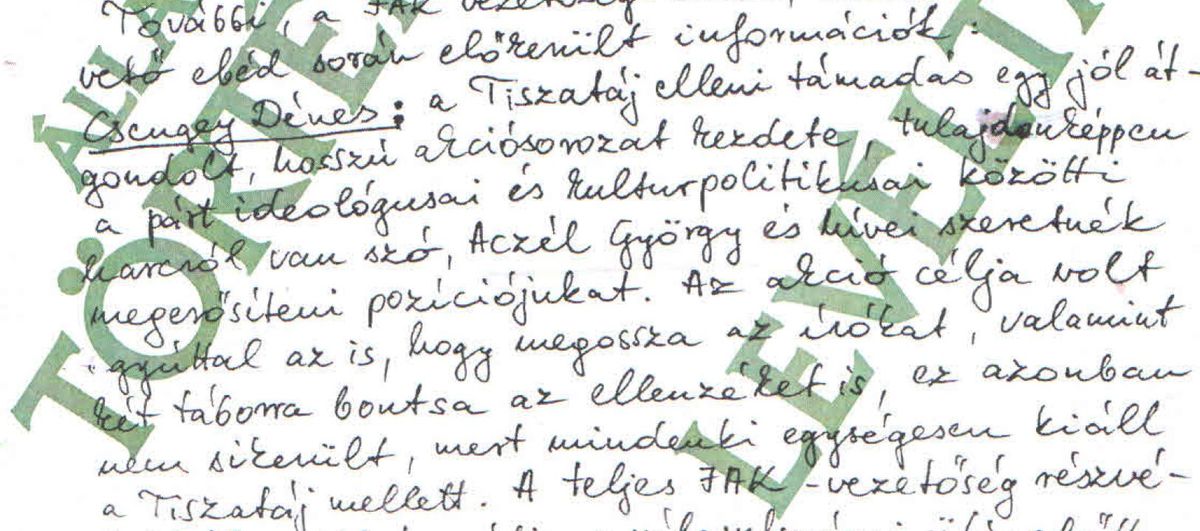 További, a JAK vezetőség
vető ebéd során előkerült információk:
Csengey Dénes: a Tiszatáj elleni támadás egy jól át-
gondolt, hosszú akciósorozat kezdete, tulajdonképpen
a párt ideológusai és kulturpolitikusai közötti
harcról van szó, Aczél György és hívei szeretnék
megerősíteni pozíciójukat. Az akció célja volt
egyúttal az is, hogy megossza az írókat, valamint
két táborra bontsa az ellenzéket is, ez azonban
nem sikerült, mert mindenki egységesen kiáll
a Tiszatáj mellett. A teljes JAK-vezetőség részvé-
TÖRTÉ
LEVÉLT